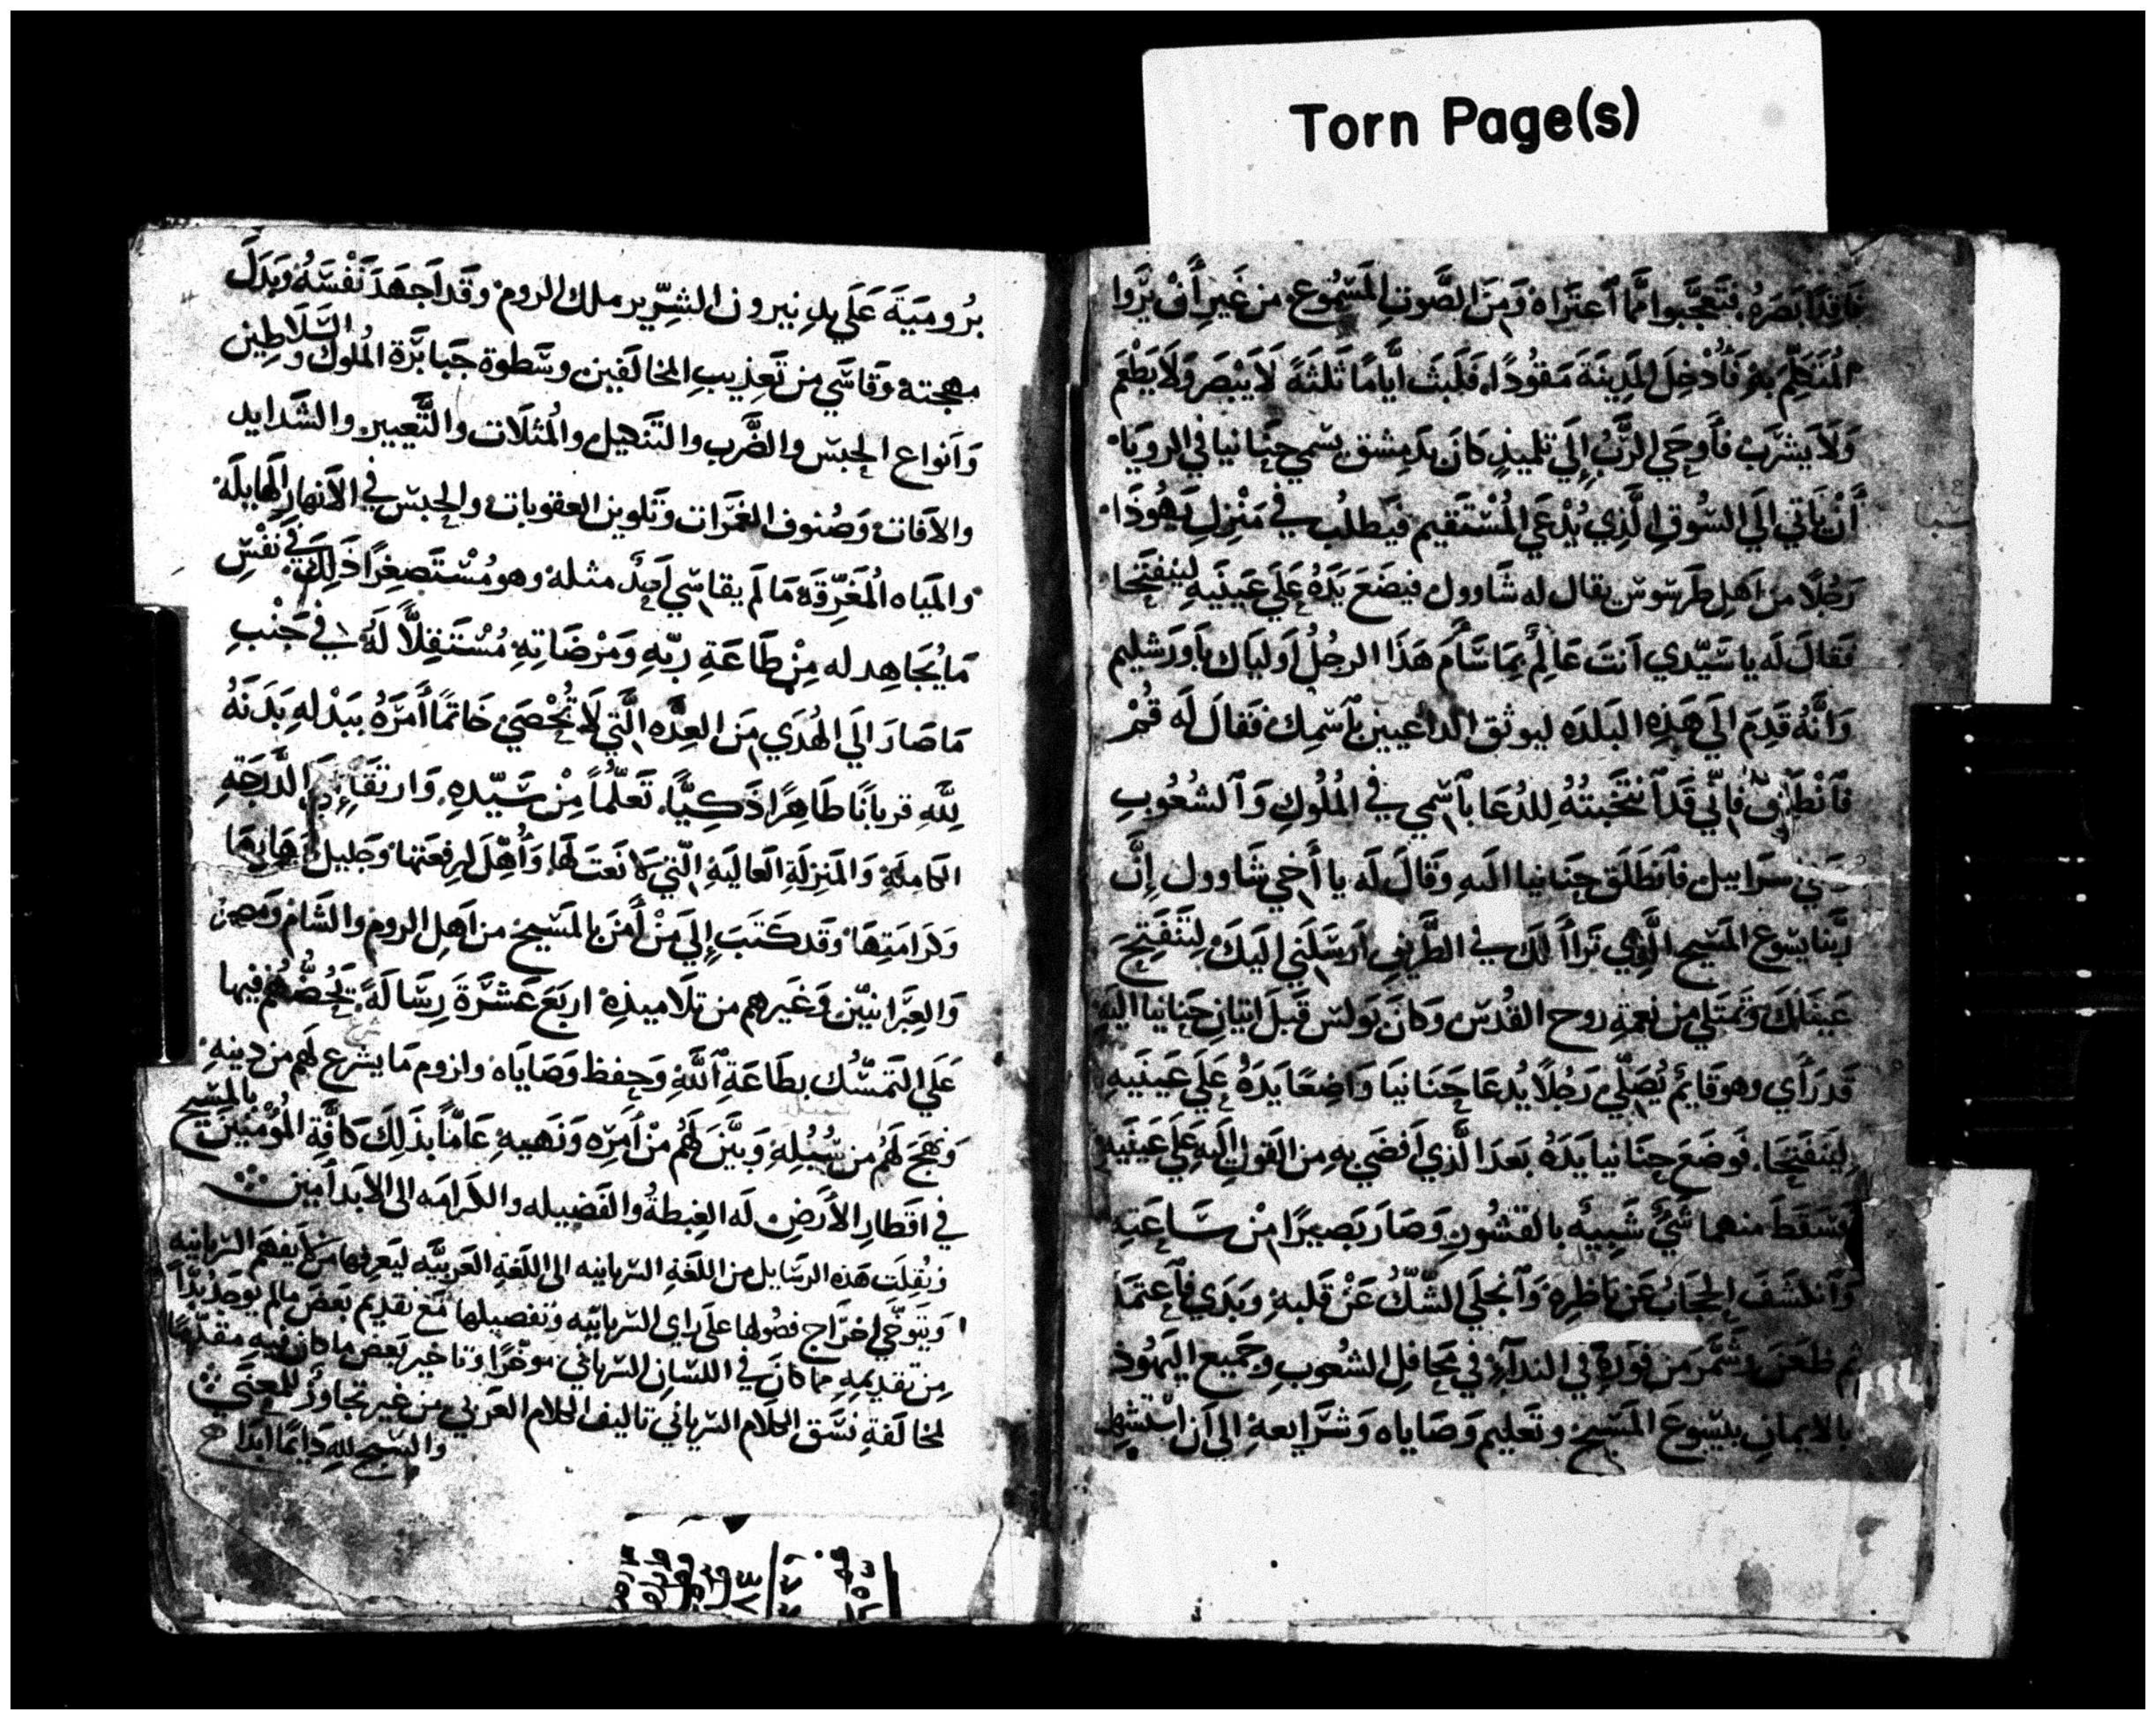 Torn Page(s)
فاقدًا بَصَرَهُ فتعجَّبوا ممَّا اَعتَرَاهُ وَمِنَ الصَّوتِ المَسْمُوع من غَيرِ أَنْ يَّرَوا
المُتَكلِّمَ بِهِ فَأُدْخِلَ المَدِينَةَ مَقُودًا فَلَبِثَ ايَّامًا ثَلثَةً لَا يَبْصِر وَلَا يَطْعَم
وَلَا يَشْرَبْ فأَوحَي الرَّبُّ إِلَي تلميذٍ كَانَ بدِمِشق يسَمي حَنَانيا في الرويَا
أَنْ يَاتي الَي السُوقِ الَّذِي يُدْعَي المُسْتَقيم فيَطلُب في مَنْزِلِ يَهُوذَا
رَجُلًا من اَهلِ طَرسُوسَ يقال له شَاوول فيضَعَ يَدَهُ عَلَي عَينَيهِ لينفتِحَا
فَقالَ لَه يا سَيّدي انتَ عَالِمٌ بِمَا سَّامَ هَذَا الرجُلُ اَوليَاك بِاورَشليم
وَانَّهُ قَدِمَ الَي هَذِهِ البَلدَه ليوثق الداعيين بٱسمِك فَقالَ لَه قُمْ
فَٱنْطَلِق فإِنِّي قَد ٱنْتَخَبتُهُ لِلدُعَا بٱسْمِي في المُلُوكِ وَٱلشعُوبِ
وَبَني سرَاييل فٱنطَلَق حَنَانيا الَيهِ وَقَالَ لَه يا أَخي شَاوول إِنَّ
رَبّنا يسُوع المَسِيح الَّذِي تَرَاأَ لَكَ في الطَّريقِ اَرسَلَني اِلَيكَ لِتَنْفَتِحَ
عَينَاكَ وَتَمتَلي من نِعمَةِ روح القُدُس وَكانَ بَولسَ قَبلَ اتيَانِ حَنَانيا اليهِ
قَد رَأَي وهو قايم يُصَلّي رَجُلًا يُدعَا حَنَانيَا وَاضِعًا يَدَهُ عَلَي عَينَيهِ
لِيَنفَتِحَا فَوضَعَ حَنَانيا يَدَهُ بَعدَ الَّذي اَفضَي بِهِ مِن القَولِ اليهِ عَلَي عَينَيهِ
فَسَقَطَ منهما شَيٌّ شَبِيهٌ بالقشُورِ وَصَارَ بَصيرًا مِنْ سَاعَتهِ
وَٱنكشَفَ الحِجَابُ عَن نَاظِرِهِ وَٱنْجَلَي الشَّكُّ عَنْ قَلبهِ وَبَدَي فَٱعتَمَدَ
ثم ظعَنَ وشَمَّرَ من فَورِهِ في الندآءِ في مَحَافِل الشعُوبِ وجَميع اليَهُود
بالايمانِ بيَسُوعَ المَسيحِ وتَعليم وَصَاياه وَشَرَايعهِ الي اَن استُشهِدَ
بُرُومِيَةَ عَلَي يدِ نيرون الشِرِّير ملك الروم وقَد اَجهَدَ نَفْسَهُ وَبَذَلَ
مهجته وقَاسَي من تَعذِيبِ المخَالفين وسَطوة جَبَابَرَة المُلوك والسَلَاطِين
وَانواع الحبس والضَّرب والتَنكيل والمُثلَات والتَّعيير والشَدايد
والآفات وَصُنوف الغَمَرَات وَتَلوين العقوبات والحبس في الانهار الهايلَه
والمَيَاه المُغَرِّقَة مَا لَم يقاسي احَدٌ مثله وهو مُسْتَصغِرًا ذَلِكَ في نَفْسِ
مَا يُجَاهِد له مِنْ طَاعَةِ رَبّهِ وَمَرْضَاتِهِ مُسْتَقِلًّا لَهُ في جَنْبِ
مَا صَارَ الَي الهُدَي مَن العِدَّه الَّتي لَا تُحْصَي خَاتمًا أَمَرَهُ ببَذلهِ بَدَنَهُ
لِلّهِ قرباَنًا طَاهِرًا ذَكِيًّا تَعَلّمًا مِنْ سَيّدهِ وَارتقَا الدَّرَجَةِ
الكامِلَةِ وَالمَنزِلَةِ العَاليَةِ الّتي لَا نَعتَ لَهَا وَأُهِّلَ لرِفعَتهَا وَجَليلَ بهَايهَا
وَكرَامَتِهَا وَقَد كَتَبَ إِلَي مَنْ أَمنَ بالمَسيح من اَهلِ الروم والشَام وَمصر
وَالعِبرَانيّين وَغَيرهم من تلَاميذِهِ اربَعَ عَشرَةَ رِسَالَةً يَحُضُّهُم فيها
عَلَي التمَسُّك بطَاعَةِ ٱللَّهِ وَحِفظ وَصَايَاه ولزوم مَا يشرع لَهُم من دِينِهِ
وَنَهَجَ لَهُم من سُبُلِهِ وَبَيَّنَ لَهُم مِنْ أَمرِه وَنَهيهِ عَامّاً بذَلِكَ كافَّةِ المُؤمنِينَ بالمَسيح
في اقطَارِ الأَرضِ لَه الغِبطةُ والفَضيله والكرامَه الي الابد اَمين
ونُقِلَت هَذِه الرسَايل من اللغَةِ السّريانيه الي اللغَةِ العَربيَّه ليَعرفها مَن لا يفهم السّريَانيه
وَيتوخَّي اخرَاج فصُولها علَي رَاي السّريانيّه وتفصيلها مَع تقديم بَعضَ مالم يوجد بُدّاً
مِن تقديمهِ مما كانَ في اللسَانِ السّريَاني موَخَّرًا وتاخير بَعض ما كانَ فيهِ مقَدّمًا
لمخالَفةِ نسَق الكلَام السّريَاني تاليف الكلام العَربي من غَير تجاوُز للمعنَي
والسّبح للهِ دَايمًا ابَدًا